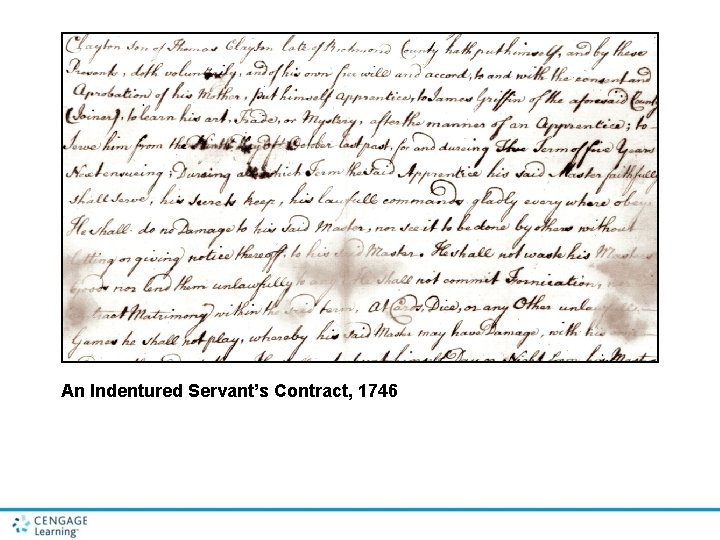 Clayton Son of Thomas Clayton late of Richmond County hath put himself, and by these
Presents, doth voluntarily, and of his own free will and accord, to and with the consent and
Aprobation of his Mother, put himself apprentice, to James Griffin of the aforesaid County
(Joiner), to learn his art, Trade, or Mystery, after the manner of an Apprentice; to
Serve him from the Ninth Day of October last past, for and dureing The Term of five Years
Next ensueing; Dureing all which Term the said Apprentice his said Master faithfully
shall serve, his secrets keep, his lawfull commands gladly every where obey
He shall do no Damage to his said Master, nor see it to be done by others without
letting or giving notice thereoff, to his said Master. He shall not waste his Masters
Goods nor lend them unlawfully to any He shall not commit Fornication,
Matrimony within the said term. At Cards, Dice, or any Other
Games he shall not play, whereby his said Master may have Damage, with his
Day or Night from his Master
An Indentured Servant’s Contract, 1746
CENGAGE
Learning™